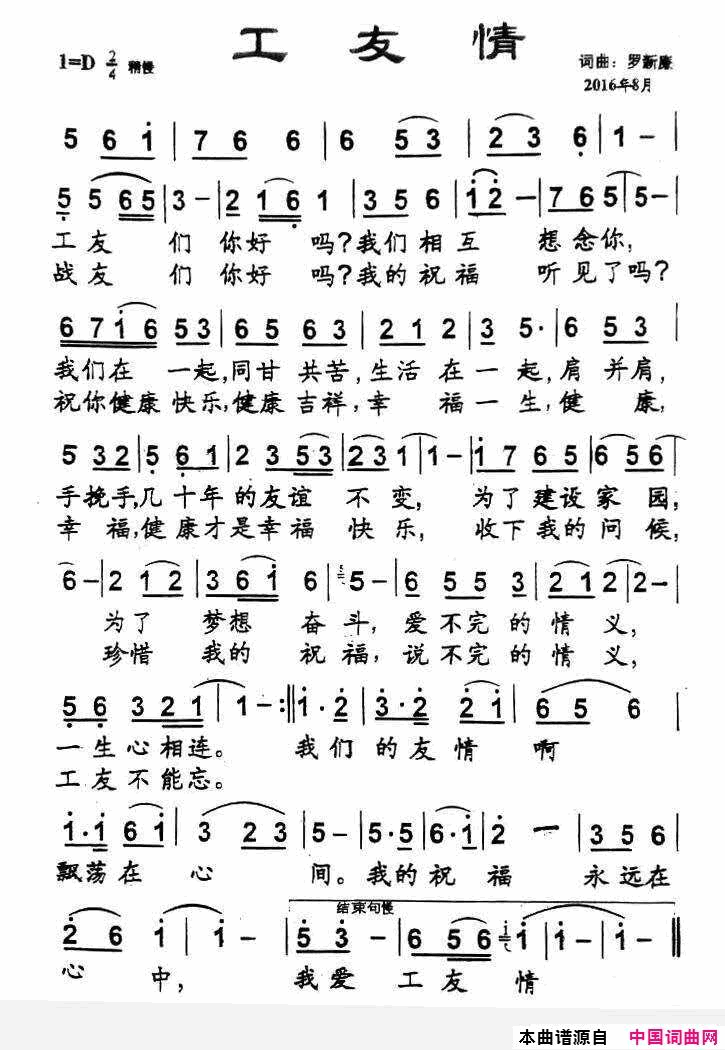 工 友 情
1=D 2/4 稍慢
词曲：罗新廉
2016年8月
5 6 i | 7 6 6 | 6 5 3 | 2 3 6 | 1 – |
5 5 6 5 | 3 – | 2 1 6 1 | 3 5 6 | i 2 – | 7 6 5 | 5 – |
工友 们 你好 吗？我们 相互 想念你，
战友 们 你好 吗？我的祝福 听见了吗？
6 7 i 6 5 3 | 6 5 6 3 | 2 1 2 | 3 5· | 6 5 3 |
我们在 一起，同甘 共苦，生活 在一起，肩并肩，
祝你健康快乐，健康吉祥，幸 福一生，健 康，
5 3 2 | 5 6 1 | 2 3 5 3 | 2 3 1 | 1 – | i 7 6 5 | 6 5 6 |
手挽手，几十年的友谊 不变， 为了建设家园，
幸福，健康才是幸福 快乐， 收下我的问候，
6 – | 2 1 2 | 3 6 i 6 | 5 – | 6 5 5 3 | 2 1 2 | 2 – |
为了 梦想 奋斗，爱不完的情义，
珍惜 我的 祝福，说不完的情义，
5 6 3 2 1 | 1 – :| i· 2 | 3· 2 2 i | 6 5 6 |
一生心相连。 我们 的友情 啊
工友不能忘。
i· i 6 i | 3 2 3 | 5 – | 5· 5 | 6· i | 2 – | 3 5 6 |
飘荡在 心 间。我的祝 福 永远在
结束句慢
2 6 i | i – | 5 3 – | 6 5 6 i | i – | i – ‖
心 中， 我爱 工友 情
本曲谱源自 中国词曲网